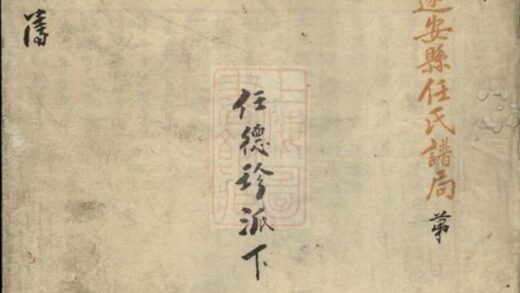 遂安縣任氏譜局
第
任德珍派下